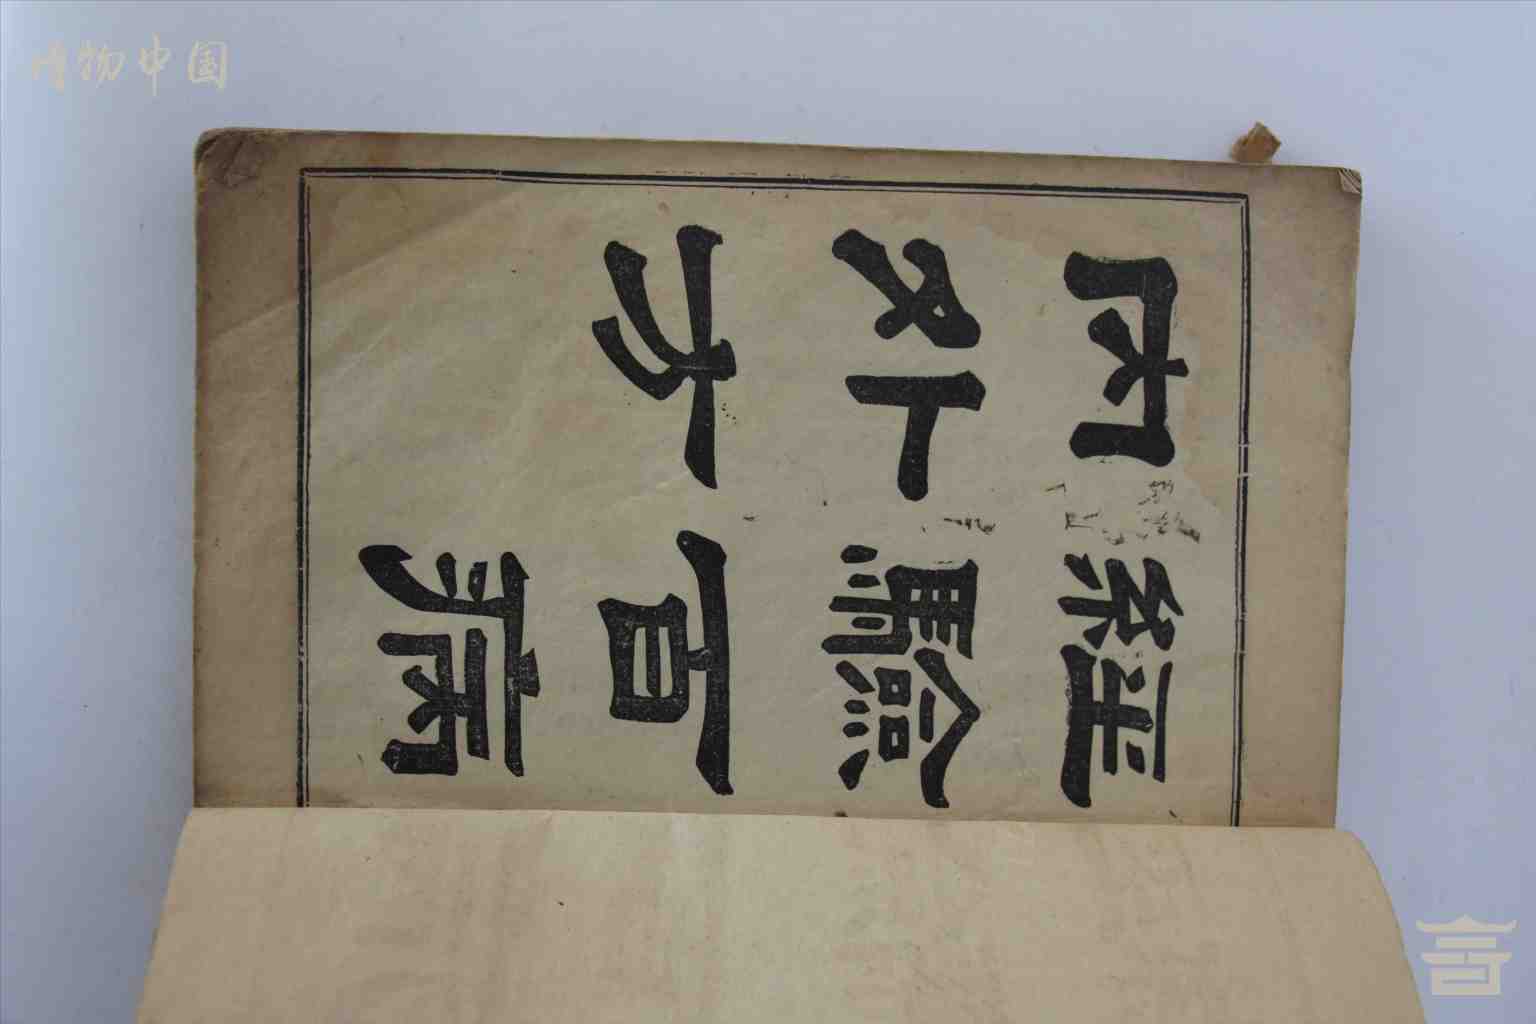 經驗百病
內外方
博物中国